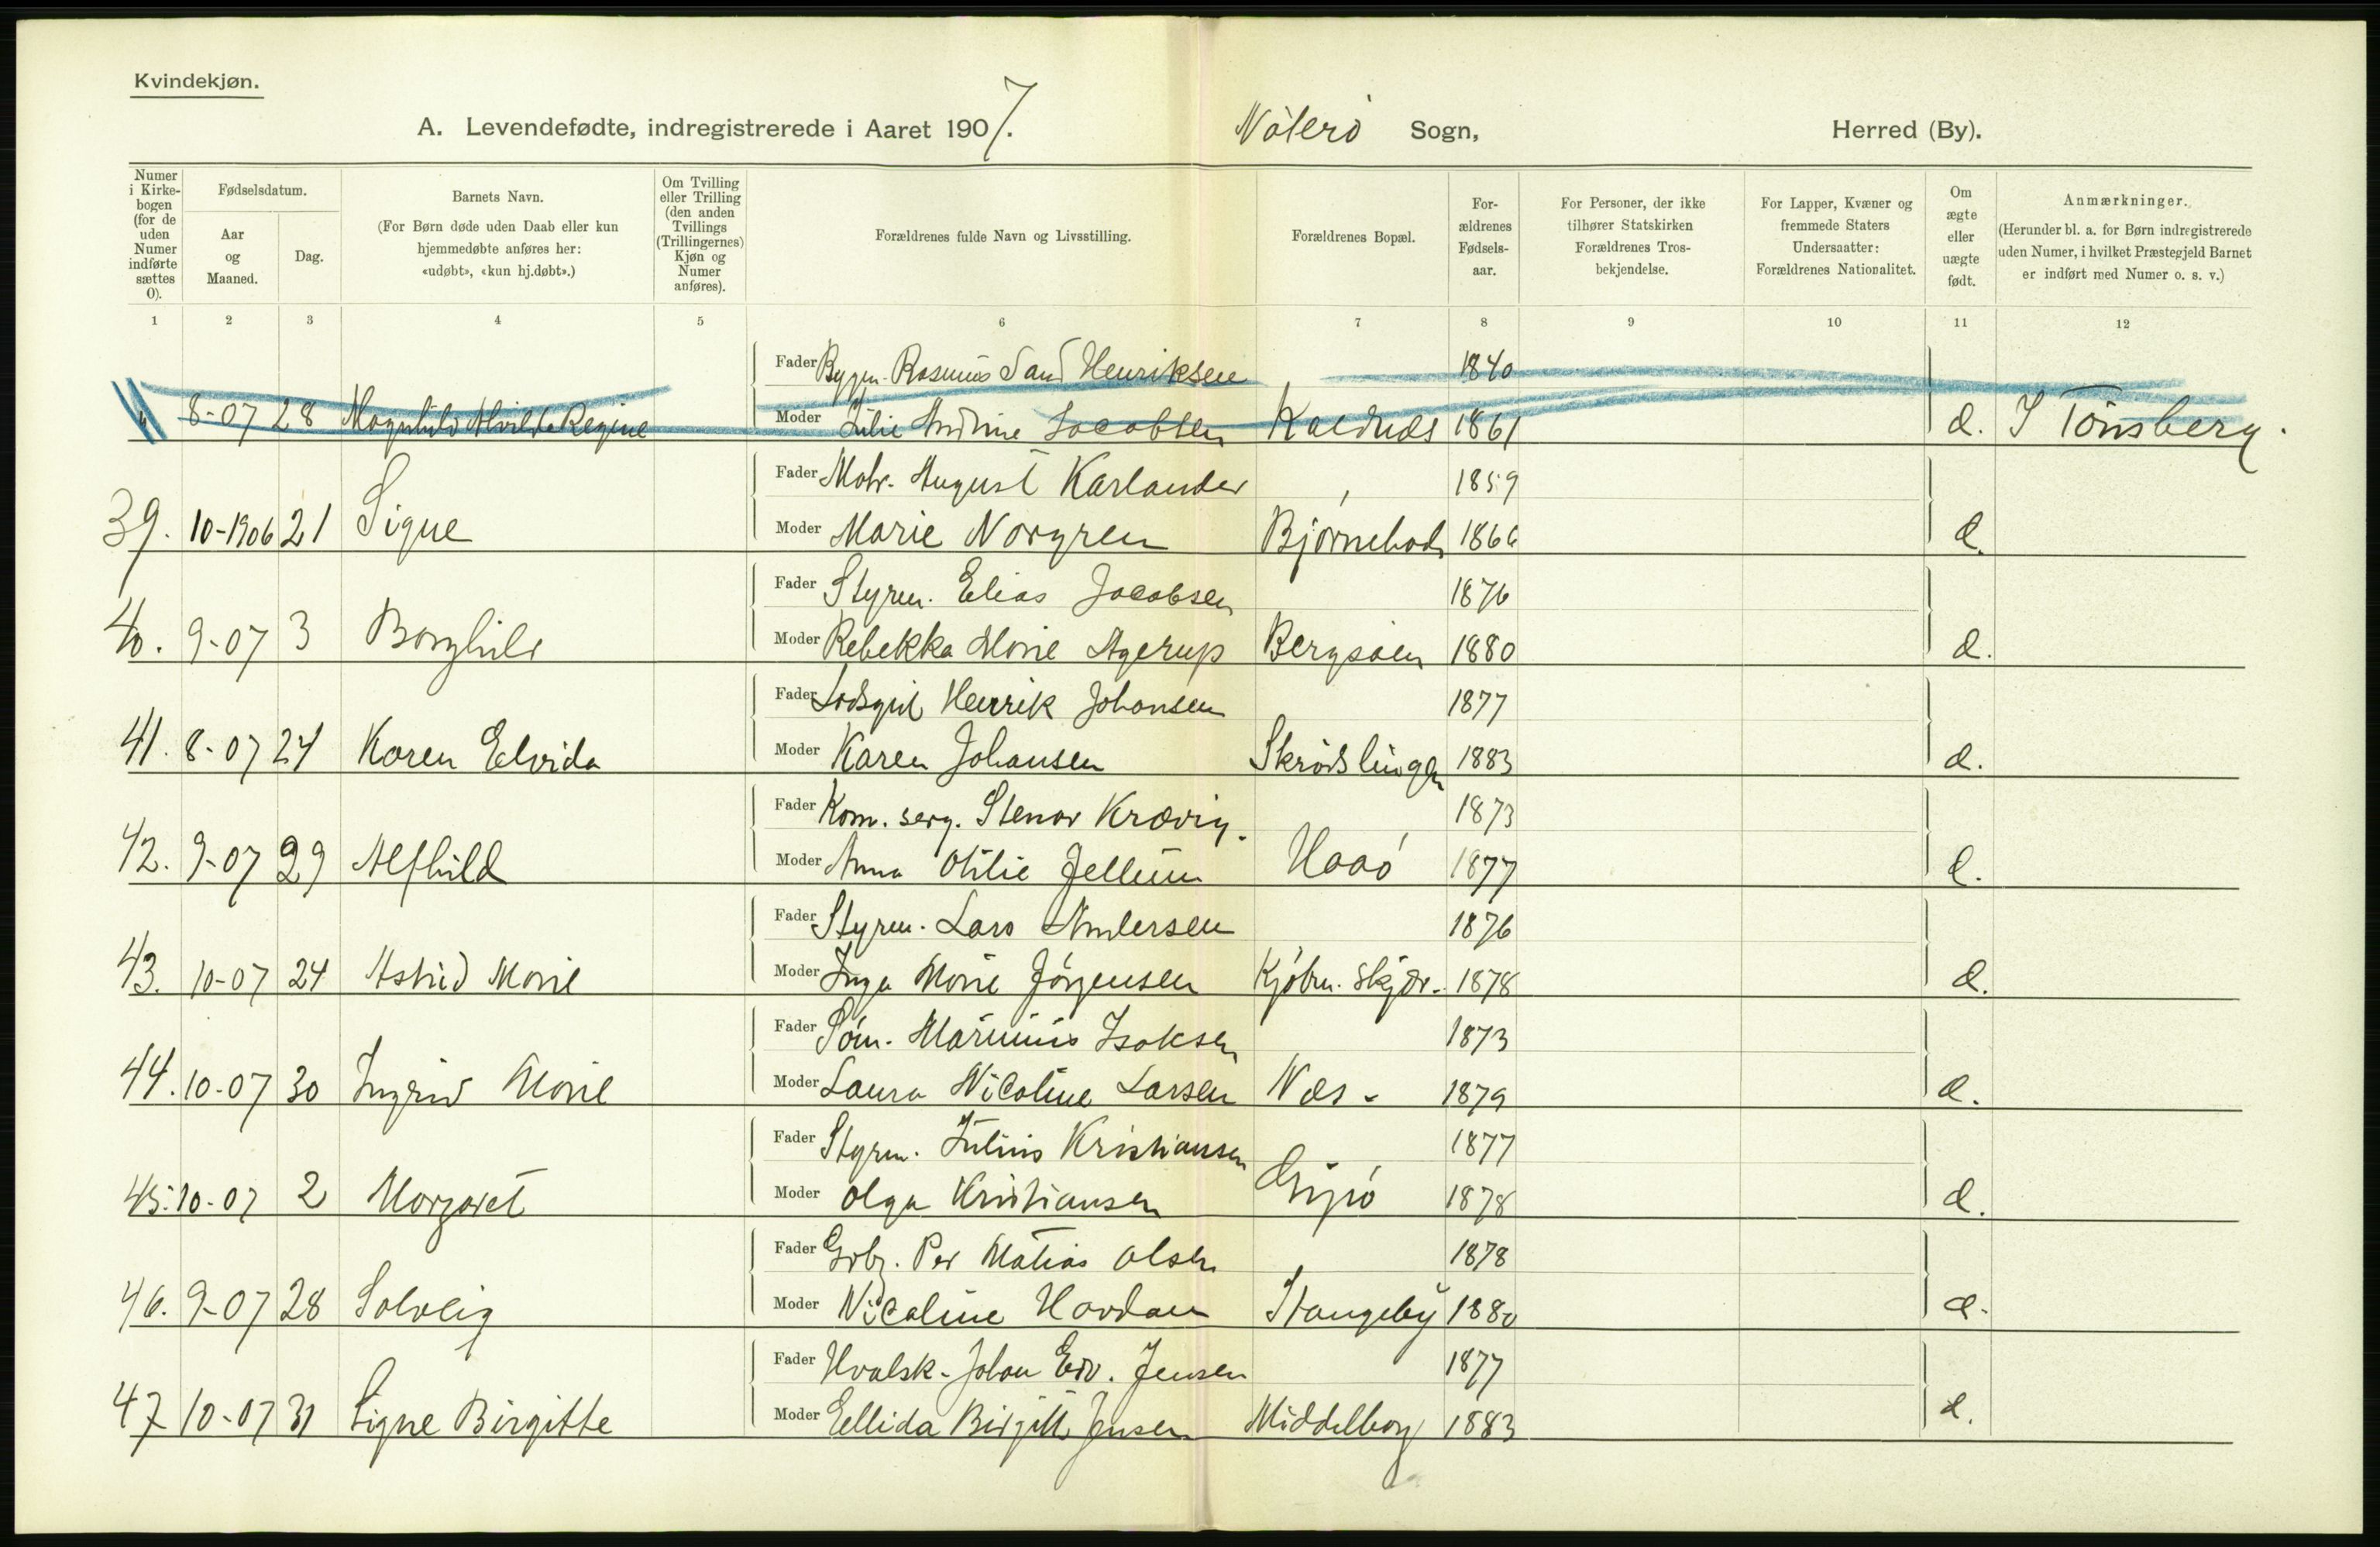 Kvindekjøn.
A. Levendefødte, indregistrerede i Aaret 1907. Nøterø Sogn, Herred (By).
Numer i Kirkebogen (for de uden Numer indførte sættes 0).
Fødselsdatum.
Aar og Maaned.
Dag.
Barnets Navn.
(For Børn døde uden Daab eller kun hjemmedøbte anføres her: «udøbt», «kun hj.døbt».)
Om Tvilling eller Trilling (den anden Tvillings (Trillingernes) Kjøn og Numer anføres).
Forældrenes fulde Navn og Livsstilling.
Forældrenes Bopæl.
Forældrenes Fødselsaar.
For Personer, der ikke tilhører Statskirken Forældrenes Trosbekjendelse.
For Lapper, Kvæner og fremmede Staters Undersaatter: Forældrenes Nationalitet.
Om ægte eller uægte født.
Anmærkninger.
(Herunder bl. a. for Børn indregistrerede uden Numer, i hvilket Præstegjeld Barnet er indført med Numer o. s. v.)
1 2 3 4 5 6 7 8 9 10 11 12
Fader Bygm. Rasmus Sand Henriksen 1840
" 8-07 28 Magnhild Alvilde Regine Moder Julie Andrine Jacobsen Kaldnæs 1861 æ. I Tønsberg.
Fader Matr. August Karlander 1859
39. 10-1906 21 Signe Moder Marie Norgren 1866 æ.
Fader Styrm. Elias Jacobsen 1876
40. 9-07 3 Borghild Moder Rebekka Marie Agerup 1880 æ.
Fader Henrik Johansen 1877
41. 8-07 24 Karen Elvida Moder Karen Johansen 1883 æ.
Fader Kom. serg. Stenar Krævig. 1873
42. 9-07 29 Alfhild Moder Anna Otilie Jellum Haaø 1877 æ.
Fader Styrm. Lars Andersen 1876
43. 10-07 24 Astrid Marie Moder Inga Marie Jørgensen Kjøbm. skjær. 1878 æ.
Fader Søm. Marinius Isaksen 1873
44. 10-07 30 Ingrid Marie Moder Laura Nicoline Larsen Næs - 1879 æ.
Fader Styrm. Julius Kristiansen 1877
45. 10-07 2 Margaret Moder Olga Kristiansen 1878 æ.
Fader Grbr. Per Matias Olsen 1878
46. 9-07 28 Solveig Moder Nicoline Havdan Stangeby 1880 æ.
Fader Hvalsk. Johan Edv. Jensen 1877
47 10-07 31 Signe Birgitte Moder Ellida Birgitte Jensen Middelborg 1883 æ.